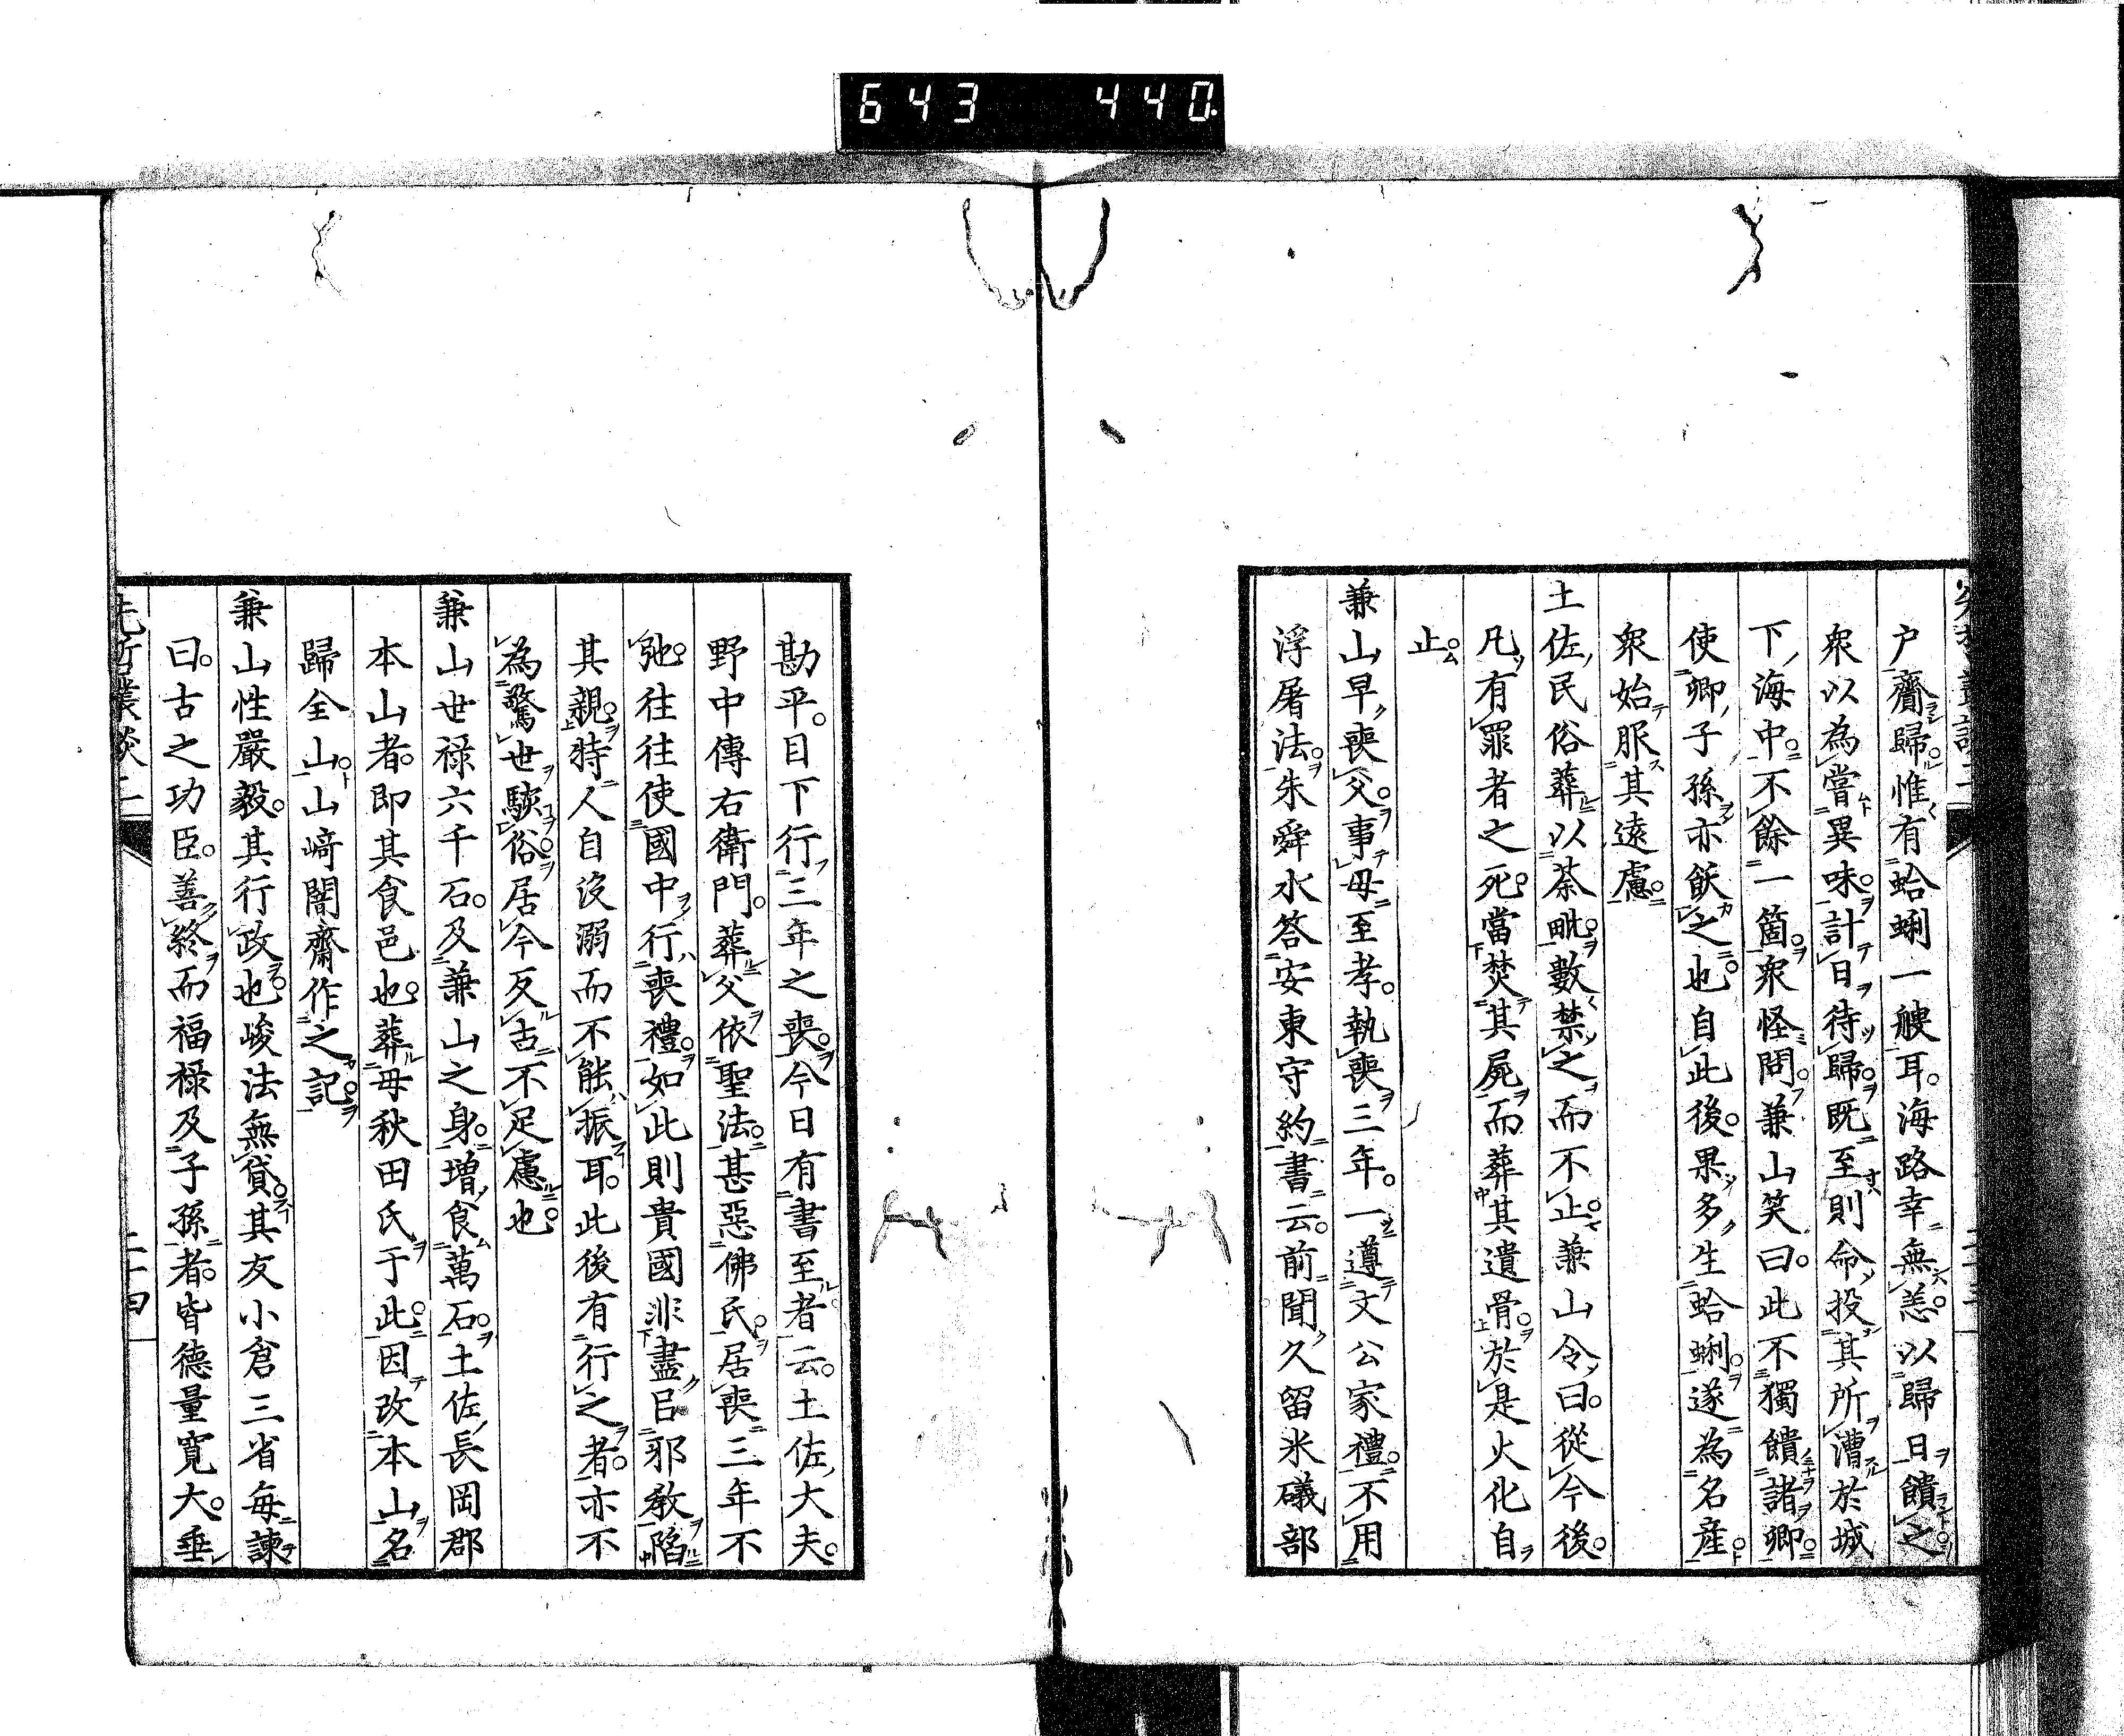 643 440
戶齎歸惟有蛤蜊一艘耳海路幸無恙以歸日饋之
衆以為嘗異味計日待歸既至則命投其所漕於城
下海中不餘一箇衆怪問兼山笑曰此不獨饋諸卿
使卿子孫亦飫之也自此後果多生蛤蜊遂為名產
衆始服其遠慮
土佐民俗葬以荼毗數禁之而不止兼山令曰從今後
凡有罪者之死當焚其屍而葬其遺骨於是火化自
止
兼山早喪父事母至孝執喪三年一遵文公家禮不用
浮屠法朱舜水答安東守約書云前聞久留米礒部
勘平目下行三年之喪今日有書至者云土佐大夫
野中傳右衛門葬父依聖法甚惡佛氏居喪三年不
弛往往使國中行喪禮如此則貴國非盡邪教陷
其親特人自沒溺而不能振耳此後有行之者亦不
為驚世駭俗居今反古不足慮也
兼山世祿六千石及兼山之身增食萬石土佐長岡郡
本山者即其食邑也葬母秋田氏于此因改本山名
歸全山山﨑闇齋作之記
兼山性嚴毅其行政也峻法無貸其友小倉三省每諫
曰古之功臣善終而福祿及子孫者皆德量寬大垂
先哲叢談 二十四